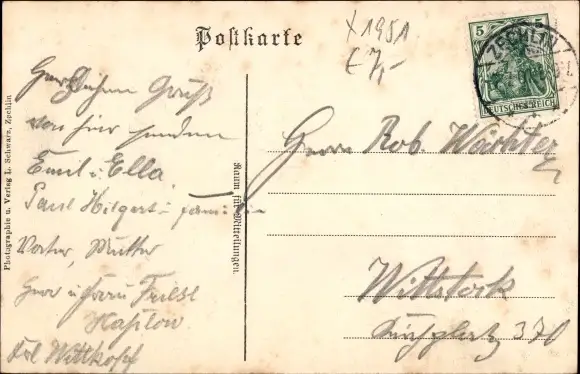 Postkarte
X 1951
€ 7,-
5 5
DEUTSCHES REICH
ZECHLIN
Herzlichen Gruß
von hier senden
Emil u. Ella
Paul Hilgert u. Familie
Vater, Mutter
Herr u. Frau
Frl Wittkopf
Photographie u. Verlag L. Schwarz, Zechlin
Raum für Mitteilungen.
Herrn Rob. Wächter
Wittstock
Kirchplatz 370